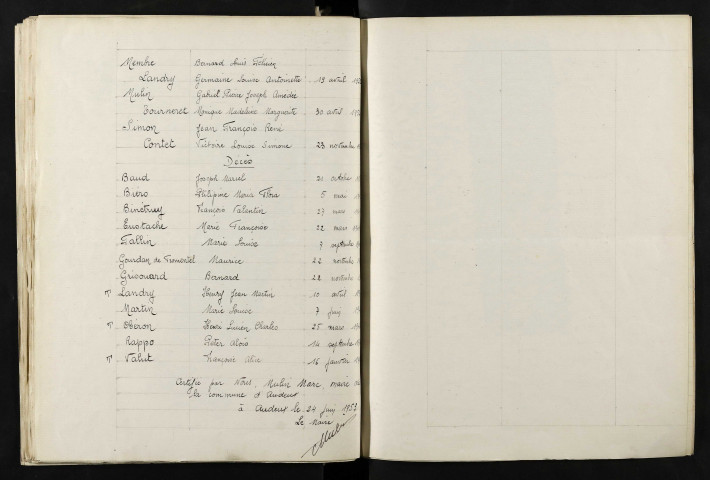 Membre Bernard Louis
Landry Germaine Louise Antoinette 19 avril
Mulin Gabriel Pierre Joseph Amédée
Tourneret Monique Madeleine Marguerite 30 avril
Simon Jean François René
Contet Victoire Louise Simone 23 novembre
Décès
Baud Joseph Marcel 21 octobre
Marie Flora 5 mai
Binétruy François Valentin 27
Eustache Marie Françoise 22 mars
Fallin Marie Louise 7 septembre
Gourdan de Fromentel Maurice 22 novembre
Grisouard Bernard 28 novembre
Landry Henry Jean Martin 10 avril
Martin Marie Louise 7 juin
Obéron Henri Lucien Charles 25 mars
Rappo Peter Aloïs 14 septembre
Valut Françoise 16 janvier
Certifié par Nous, Mulin Marc, maire
de la commune d'Audeux
à Audeux le 24 juin 1957
Le Maire